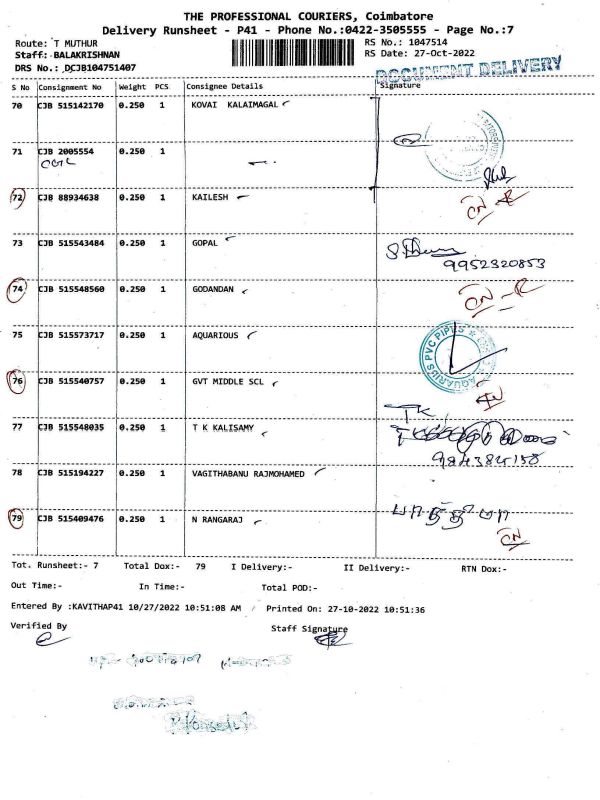 THE PROFESSIONAL COURIERS, Coimbatore
Delivery Runsheet - P41 - Phone No.:0422-3505555 - Page No.:7
Route: T MUTHUR
RS No.: 1047514
Staff: BALAKRISHNAN
RS Date: 27-Oct-2022
DRS No.: DCJB104751407
DOCUMENT DELIVERY
S No Consignment No Weight PCS Consignee Details Signature
70 CJB 515142170 0.250 1 KOVAI KALAIMAGAL
71 CJB 2005554 0.250 1
72 CJB 88934638 0.250 1 KAILESH
73 CJB 515543484 0.250 1 GOPAL
9952320853
74 CJB 515548560 0.250 1 GODANDAN
75 CJB 515573717 0.250 1 AQUARIOUS
AQUARIUS PVC PIPES
76 CJB 515540757 0.250 1 GVT MIDDLE SCL
TK
77 CJB 515548035 0.250 1 T K KALISAMY
78 CJB 515194227 0.250 1 VAGITHABANU RAJMOHAMED
79 CJB 515409476 0.250 1 N RANGARAJ
Tot. Runsheet:- 7 Total Dox:- 79 I Delivery:- II Delivery:- RTN Dox:-
Out Time:- In Time:- Total POD:-
Entered By :KAVITHAP41 10/27/2022 10:51:08 AM / Printed On: 27-10-2022 10:51:36
Verified By Staff Signature